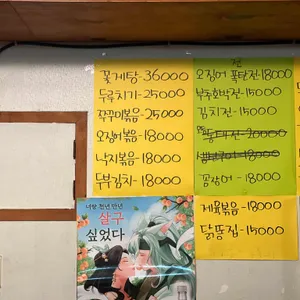 꽃게탕-36000
두루치기-25000
쭈꾸미볶음-25000
오징어볶음-18000
낙지볶음-18000
두부김치-18000
전
오징어 폭탄전-18000
부추호박전-15000
김치전-15000
동태전-20000
꼼장어-18000
제육볶음-18000
닭똥집-15000
너랑 천년 만년
살구
싶었다